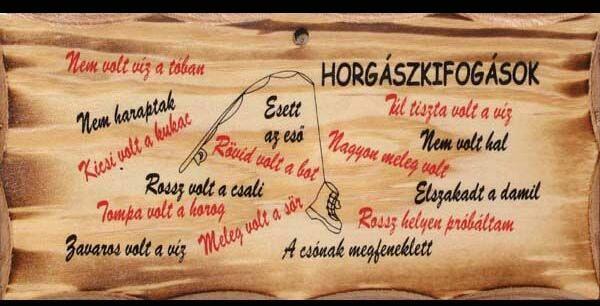 HORGÁSZKIFOGÁSOK
Nem volt víz a tóban
Nem haraptak
Kicsi volt a kukac
Esett
az eső
Rövid volt a bot
Túl tiszta volt a víz
Nagyon meleg volt
Nem volt hal
Rossz volt a csali
Tompa volt a horog
Zavaros volt a víz
Meleg volt a sör
Elszakadt a damil
Rossz helyen próbáltam
A csónak megfeneklett